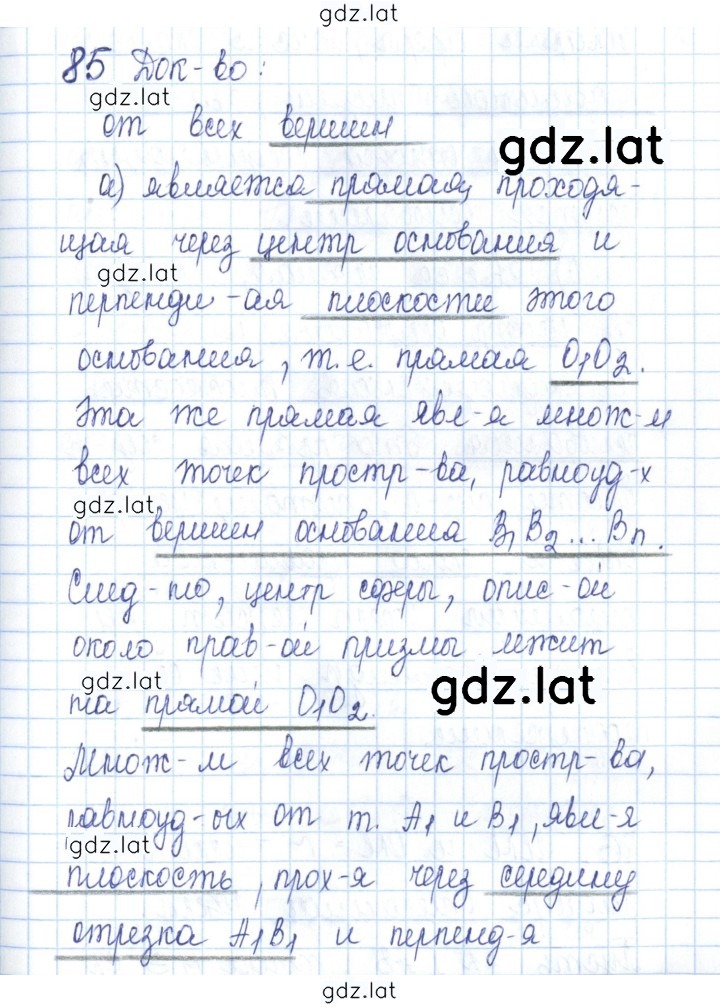 gdz.lat
85 Док-во:
gdz.lat
от всех вершин
gdz.lat
а) является прямая, проходя-
щая через центр основания и
gdz.lat
перпенди-ая плоскости этого
основания, т.е. прямая O1O2.
Эта же прямая явл-я множ-м
всех точек простр-ва, равноуд-х
gdz.lat
от вершин основания B1B2...Bn.
След-но, центр сферы, опис-ой
около прав-ой призмы лежит
gdz.lat
на прямой O1O2.
gdz.lat
Множ-м всех точек простр-ва,
равноуд-ых от т. A1 и B1, явл-я
gdz.lat
плоскость, прох-я через середину
отрезка A1B1 и перпенд-я
gdz.lat